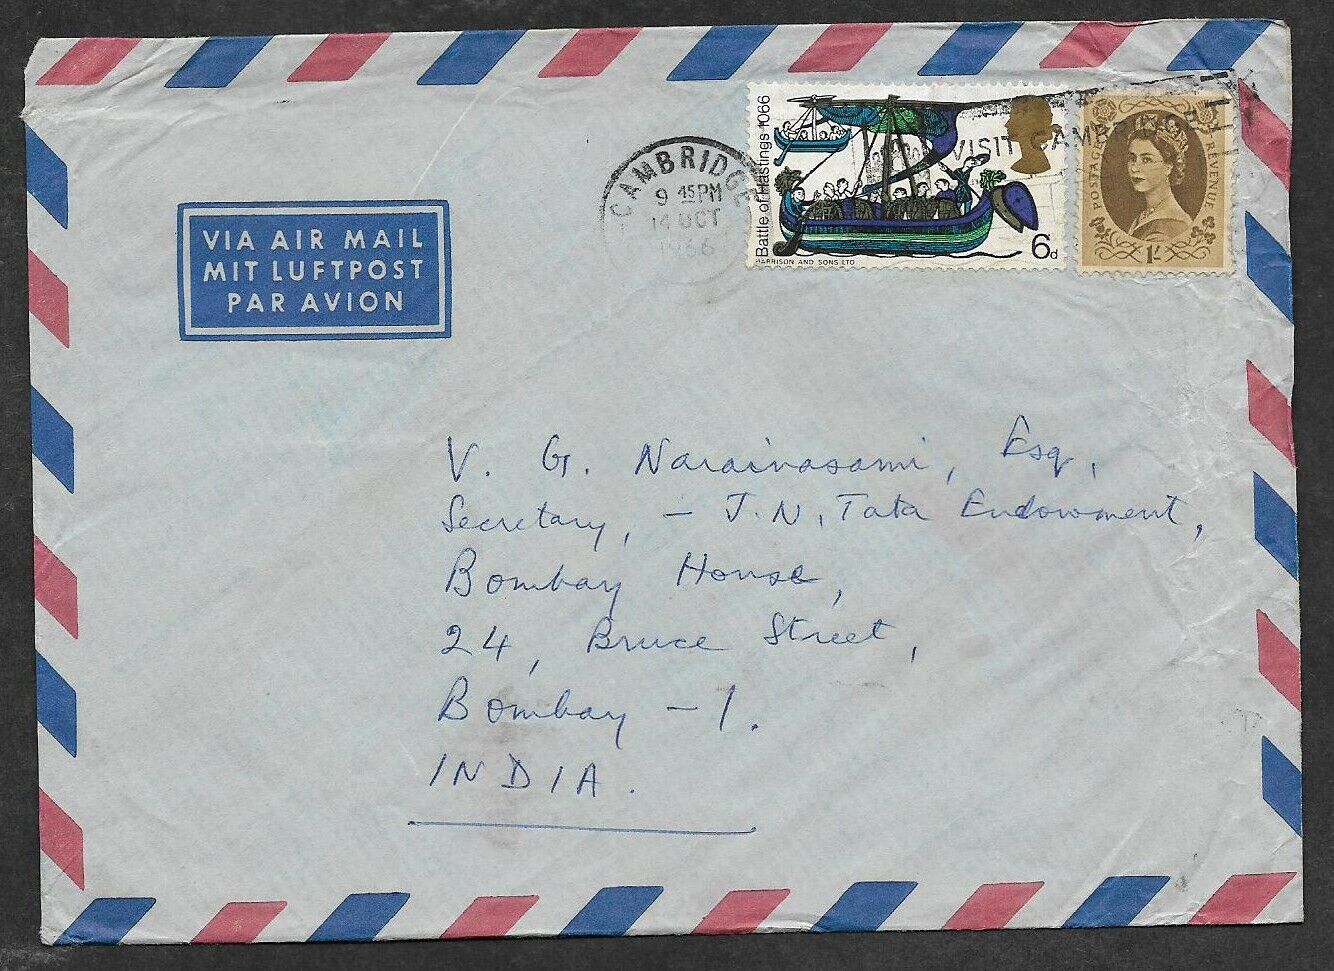 VIA AIR MAIL
MIT LUFTPOST
PAR AVION
CAMBRIDGE
9 45 PM
14 OCT
1966
Battle of Hastings 1066
HARRISON AND SONS LTD
6d
VISIT CAMBRIDGE
POSTAGE
REVENUE
1/-
V. G. Narainasami, Esq,
Secretary, - J.N. Tata Endowment,
Bombay House,
24, Bruce Street,
Bombay - 1.
INDIA.